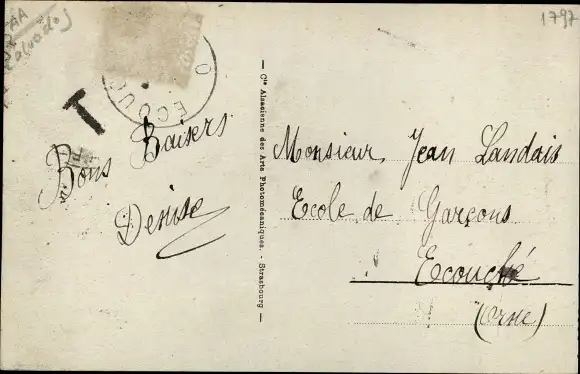 1797
ECOUC
T
Bons Baisers
Denise
— Cie Alsacienne des Arts Photomécaniques. - Strasbourg —
Monsieur Jean Landais
Ecole de Garçons
Ecouché
(Orne)